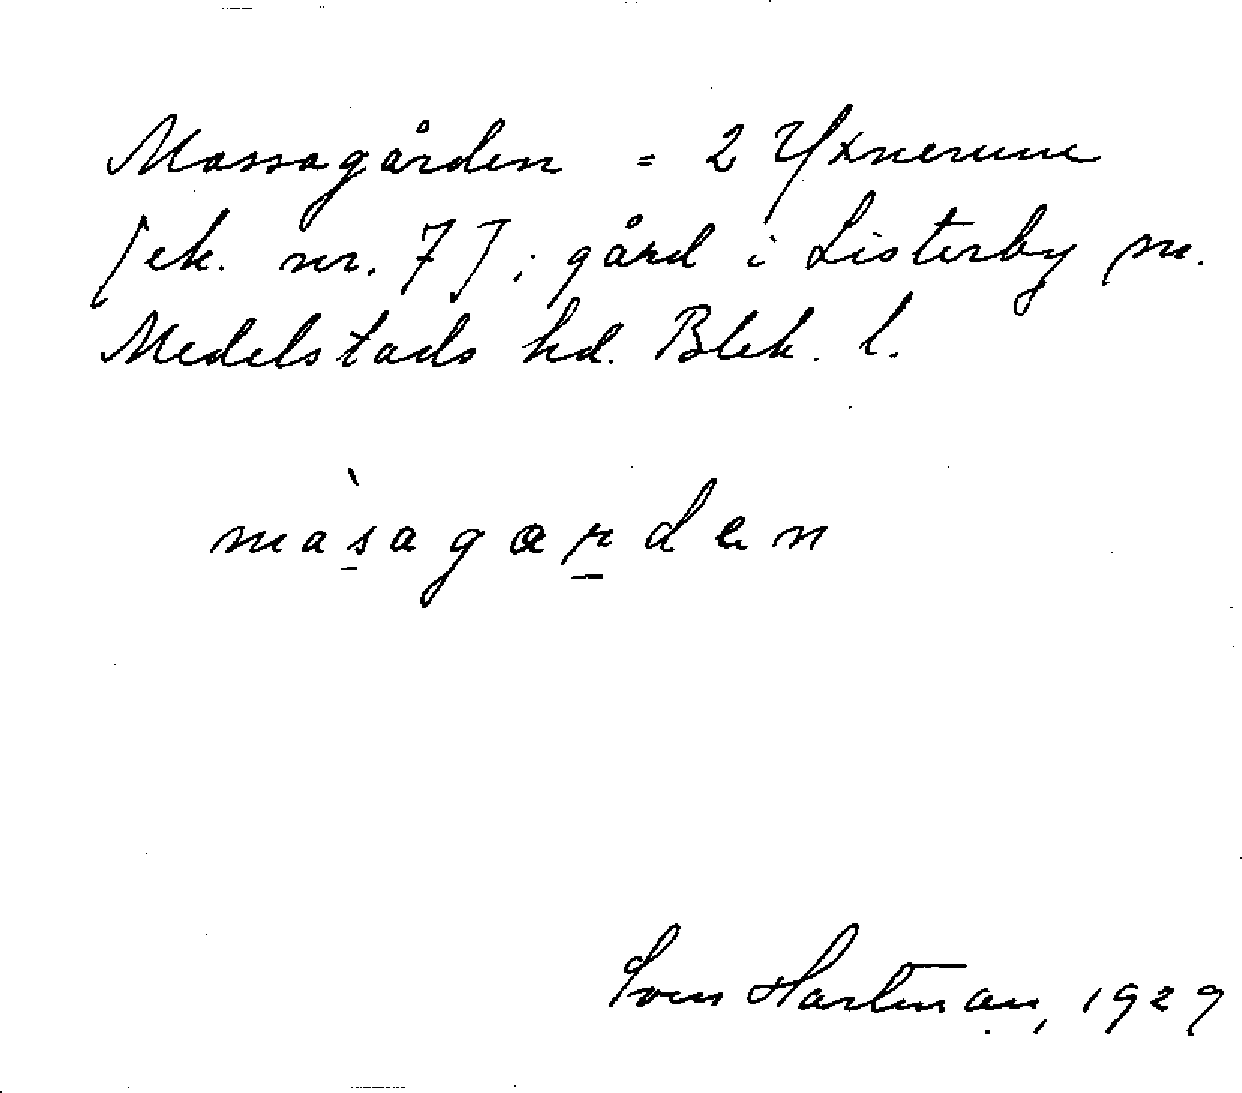 Massagården = 2 Yxnerum
[ek. nr. 7]; gård i Listerby sn.
Medelstads hd. Blek. l.
màs̠agɑr̠dɛn
Sven Hartman, 1929